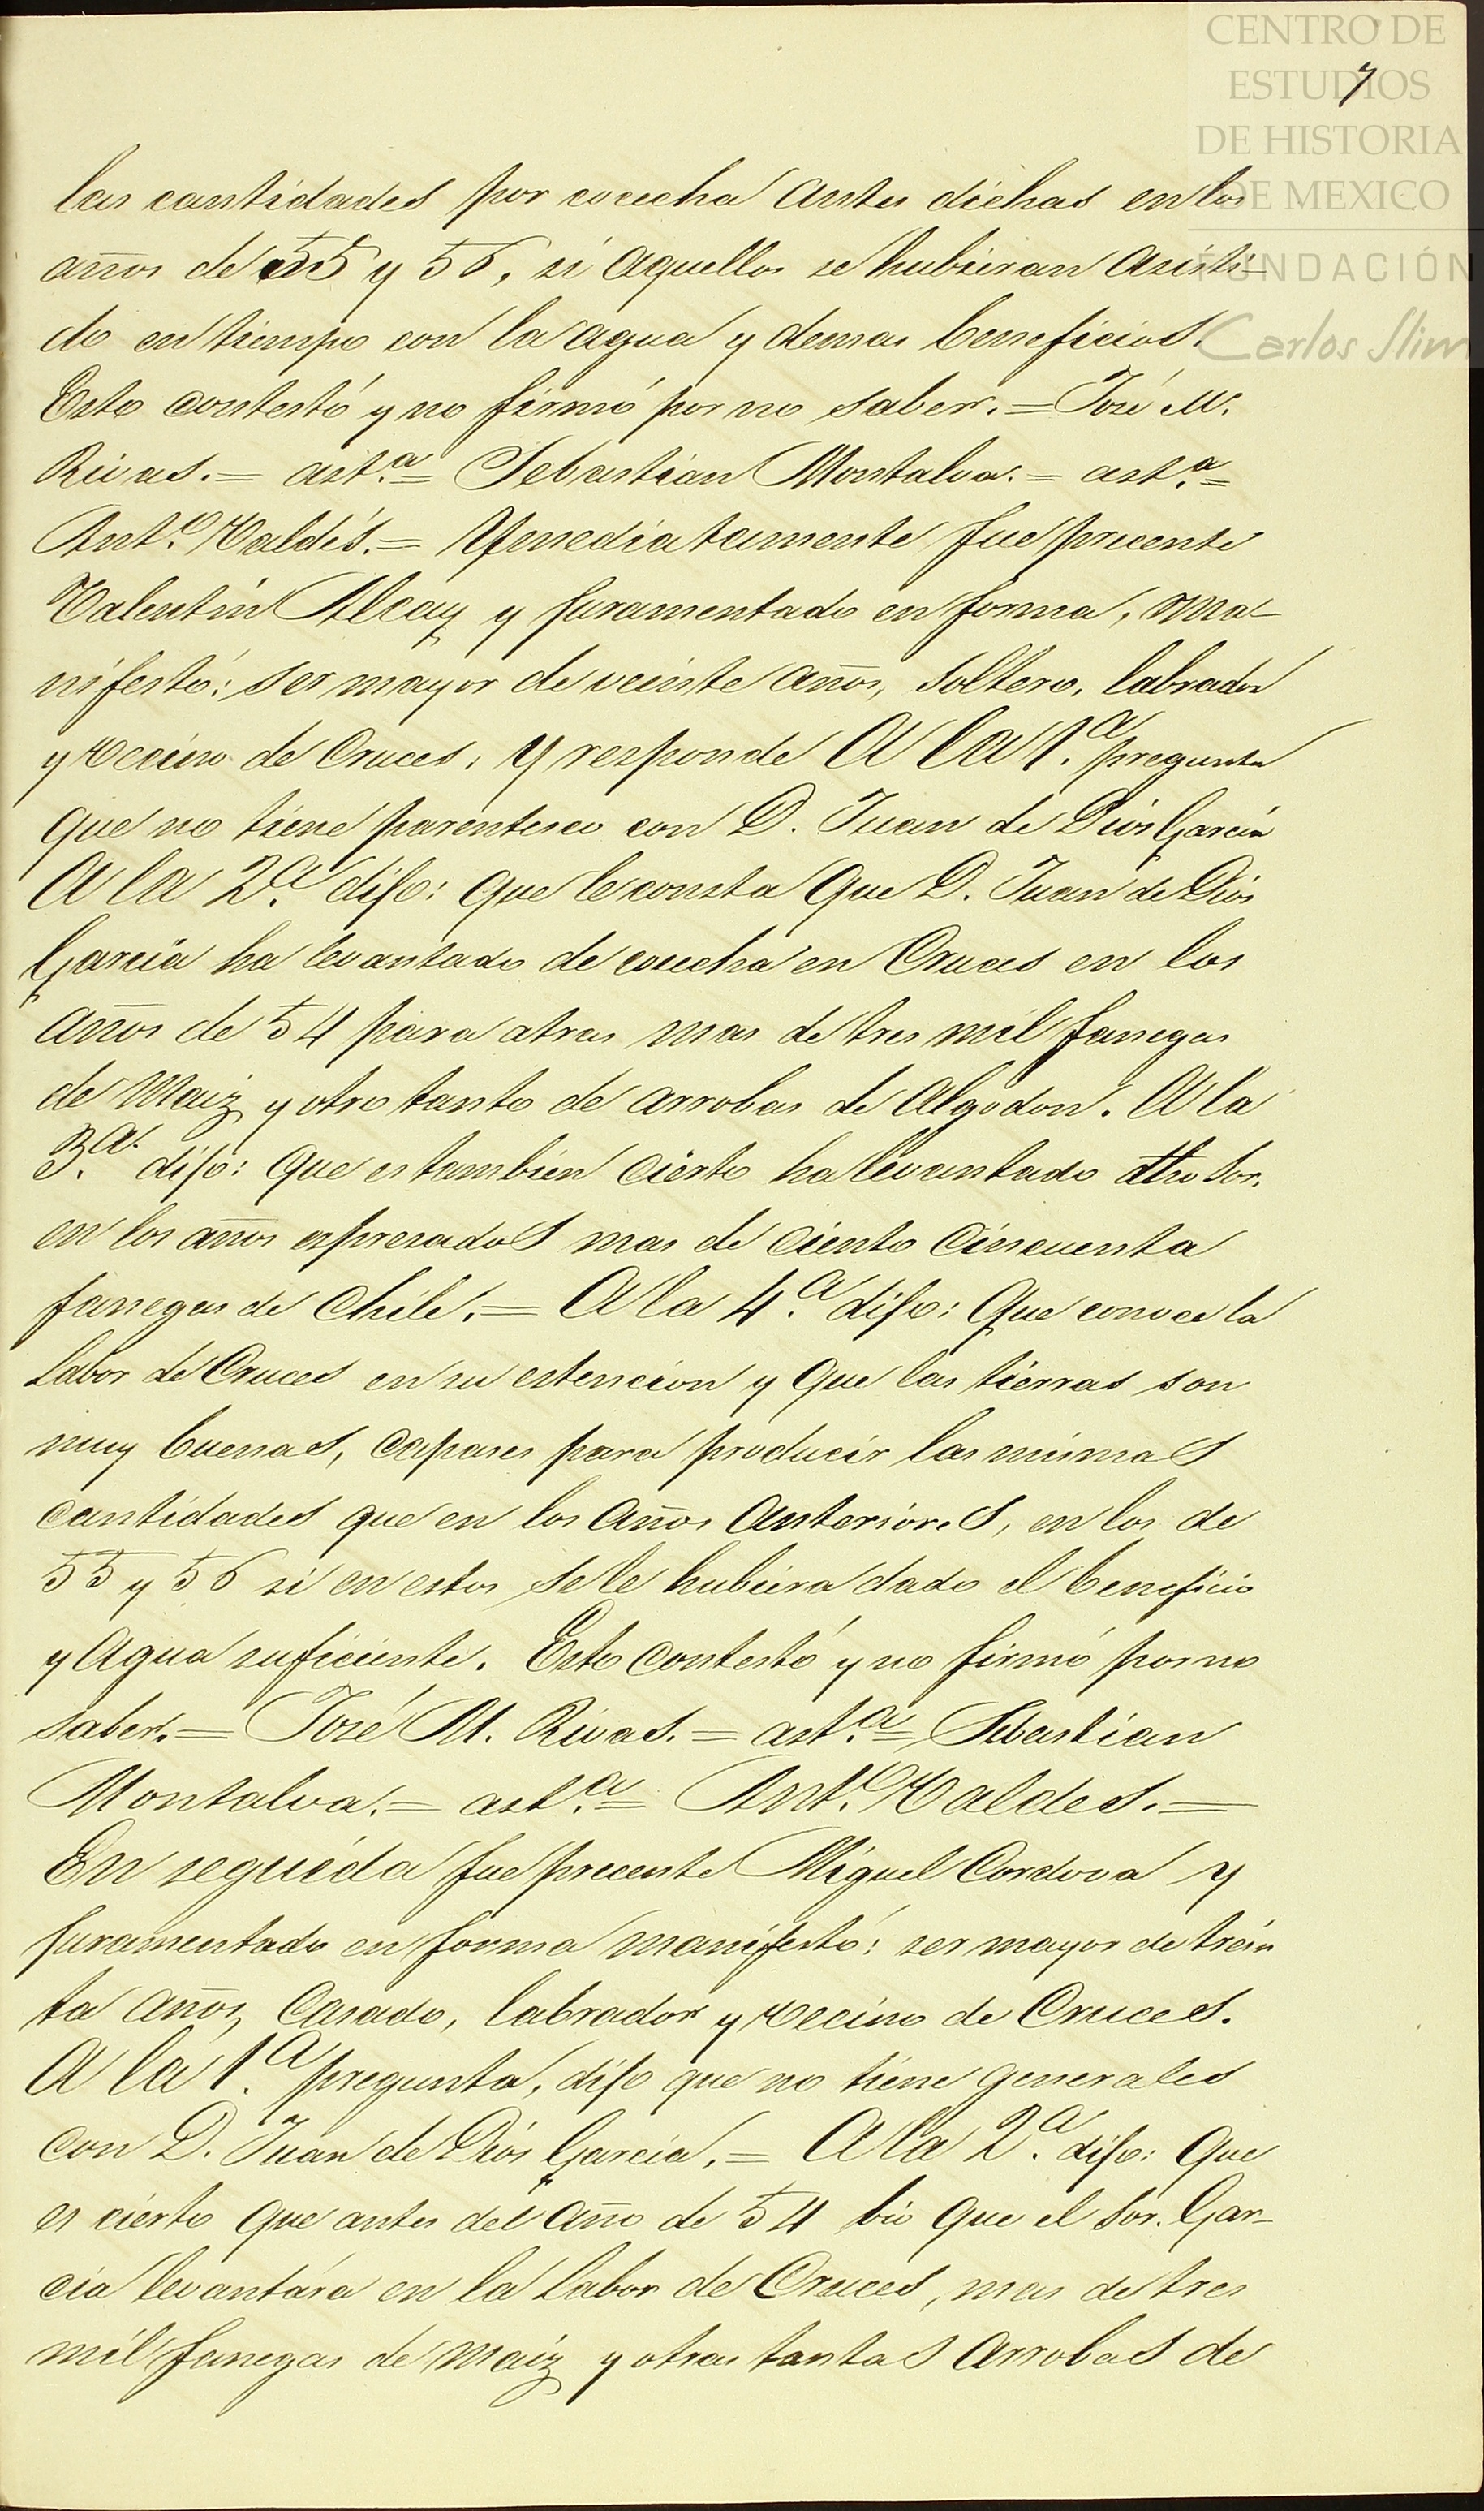 CENTRO DE
ESTUDIOS
DE HISTORIA
DE MEXICO
FUNDACIÓN
Carlos Slim
7
las cantidades por cocecha antes dichas en los
años de 55 y 56, si aquellos se hubieran asisti-
do en tiempo con la agua y demas beneficios.
Esto contestó y no firmó por no saber. = José M.
Rivas. = ast.ª = Sebastian Montalva. = ast.ª =
Ant.º Valdés. = Ynmediatamente fue precente
Valentin Alcay y juramentado en forma, ma-
nifestó: ser mayor de veinte años, soltero, labrador
y vecino de Cruces, y responde A la 1.ª pregunta
que no tiene parentesco con D. Juan de Dios Garcia
A la 2.ª dijo: que le consta que D. Juan de Dios
Garcia ha levantado de cocecha en Cruces en los
años de 54 para atras mas de tres mil fanegas
de Maiz y otro tanto de arrobas de Algodon. A la
3.ª dijo: que es tambien cierto ha levantado dho Sor.
en los años espresados mas de ciento cincuenta
fanegas de Chile. = A la 4.ª dijo: Que conoce la
Labor de Cruces en su estencion y que las tierras son
muy buenas, capases para producir las mismas
cantidades que en los años anteriores, en los de
55 y 56 si en estos se le hubiera dado el beneficio
y agua suficiente. Esto contestó y no firmó por no
saber. = José M. Rivas. = ast.ª = Sebastian
Montalva. = ast.ª = Ant.º Valdes. =
En seguida fue precente Miguel Cordova y
juramentado en forma manifestó: ser mayor de trein
ta años, casado, labrador y vecino de Cruces.
A la 1.ª pregunta, dijo que no tiene generales
con D. Juan de Dios Garcia. = A la 2.ª dijo: Que
es cierto que antes del año de 54 bio que el Sor. Gar-
cia levantára en la Labor de Cruces, mas de tres
mil fanegas de maiz y otras tantas arrobas de